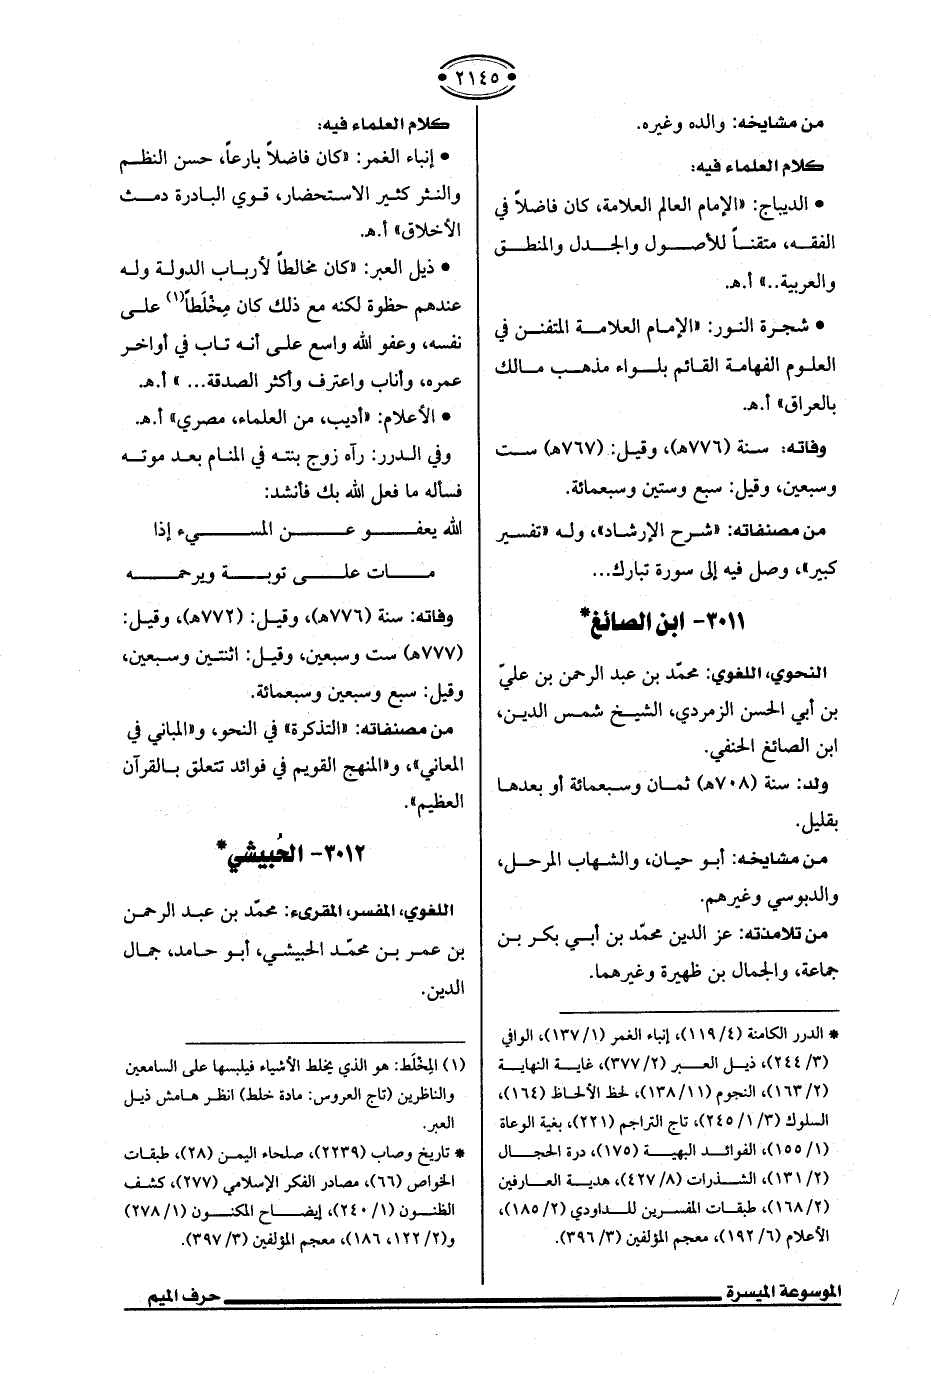 ٢١٤٥
من مشايخه: والده وغيره.
كلام العلماء فيه:
• الديباج: «الإمام العالم العلامة، كان فاضلاً في
الفقه، متقناً للأصول والجدل والمنطق
والعربية..» أ.هـ.
• شجرة النور: «الإمام العلامة المتفنن في
العلوم الفهامة القائم بلواء مذهب مالك
بالعراق» أ.هـ.
وفاته: سنة (٧٧٦هـ)، وقيل: (٧٦٧هـ) ست
وسبعين، وقيل: سبع وستين وسبعمائة.
من مصنفاته: «شرح الإرشاد»، وله «تفسير
كبير»، وصل فيه إلى سورة تبارك...
٣٠١١- ابن الصائغ*
النحوي، اللغوي: محمّد بن عبد الرحمن بن عليّ
بن أبي الحسن الزمردي، الشيخ شمس الدين،
ابن الصائغ الحنفي.
ولد: سنة (٧٠٨هـ) ثمان وسبعمائة أو بعدها
بقليل.
من مشايخه: أبو حيان، والشهاب المرحل،
والدبوسي وغيرهم.
من تلامذته: عز الدين محمّد بن أبي بكر بن
جماعة، والجمال بن ظهيرة وغيرهما.
* الدرر الكامنة (٤/ ١١٩)، إنباء الغمر (١/ ١٣٧)، الوافي
(٣/ ٢٤٤)، ذيل العبر (٢/ ٣٧٧)، غاية النهاية
(٢/ ١٦٣)، النجوم (١١/ ١٣٨)، لحظ الألحاظ (١٦٤)،
السلوك (٣/ ١/ ٢٤٥)، تاج التراجم (٢٢١)، بغية الوعاة
(١/ ١٥٥)، الفوائد البهية (١٧٥)، درة الحجال
(٢/ ١٣١)، الشذرات (٨/ ٤٢٧)، هدية العارفين
(٢/ ١٦٨)، طبقات المفسرين للداودي (٢/ ١٨٥)،
الأعلام (٦/ ١٩٢)، معجم المؤلفين (٣/ ٣٩٦).
كلام العلماء فيه:
• إنباء الغمر: «كان فاضلاً بارعاً، حسن النظم
والنثر كثير الاستحضار، قوي البادرة دمث
الأخلاق» أ.هـ.
• ذيل العبر: «كان مخالطاً لأرباب الدولة وله
عندهم حظوة لكنه مع ذلك كان مِخْلَطاً(١) على
نفسه، وعفو الله واسع على أنه تاب في أواخر
عمره، وأناب واعترف وأكثر الصدقة... » أ.هـ.
• الأعلام: «أديب، من العلماء، مصري» أ.هـ.
وفي الدرر: رآه زوج بنته في المنام بعد موته
فسأله ما فعل الله بك فأنشد:
الله يعفو عن المسيء إذا
مات على توبة ويرحمه
وفاته: سنة (٧٧٦هـ)، وقيل: (٧٧٢هـ)، وقيل:
(٧٧٧هـ) ست وسبعين، وقيل: اثنتين وسبعين،
وقيل: سبع وسبعين وسبعمائة.
من مصنفاته: «التذكرة» في النحو، و«المباني في
المعاني»، و«المنهج القويم في فوائد تتعلق بالقرآن
العظيم».
٣٠١٢- الحُبيشي*
اللغوي، المفسر، المقرىء: محمّد بن عبد الرحمن
بن عمر بن محمّد الحبيشي، أبو حامد، جمال
الدين.
(١) المِخْلَط: هو الذي يخلط الأشياء فيلبسها على السامعين
والناظرين (تاج العروس: مادة خلط) انظر هامش ذيل
العبر.
* تاريخ وصاب (٢٢٣٩)، صلحاء اليمن (٢٨)، طبقات
الخواص (٦٦)، مصادر الفكر الإسلامي (٢٧٧)، كشف
الظنون (١/ ٢٤٠)، إيضاح المكنون (١/ ٢٧٨)
و(٢/ ١٢٢، ١٨٦)، معجم المؤلفين (٣/ ٣٩٧).
الموسوعة الميسرة
حرف الميم